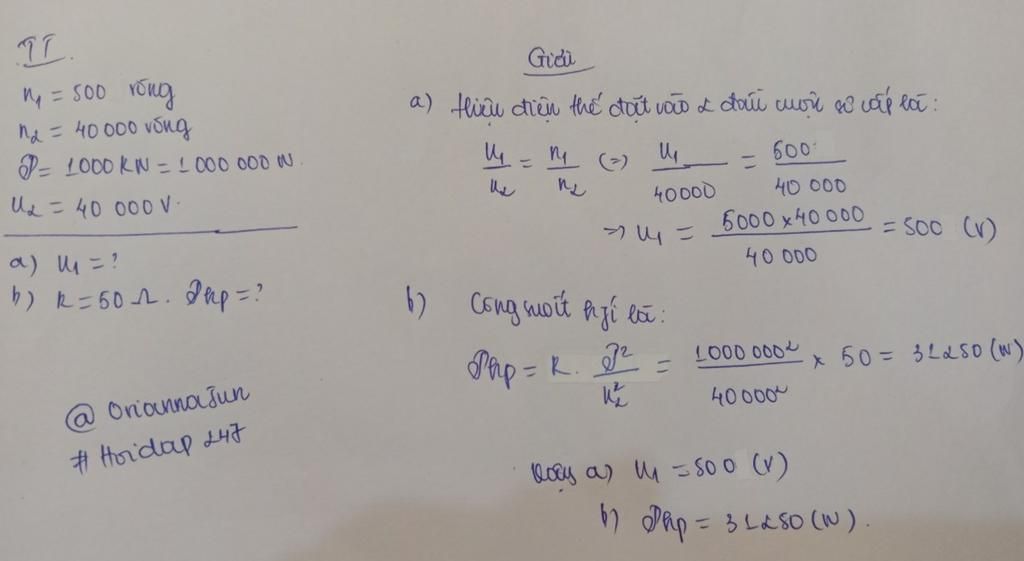 TT.
n₁ = 500 vòng
n₂ = 40 000 vòng
𝒫 = 1000 KW = 1 000 000 W.
U₂ = 40 000 V.
a) U₁ = ?
b) R = 50 Ω. 𝒫hp = ?
@ Oriannajun
# Hoidap 247
Giải
a) Hiệu điện thế đặt vào 2 đầu cuộn sơ cấp là:
U₁/U₂ = n₁/n₂ (=) U₁/40000 = 500/40 000
=> U₁ = 5000 x 40 000/40 000 = 500 (V)
b) Công suất hpí là:
𝒫hp = R. 𝒫²/U₂² = 1000 000²/40 000² x 50 = 31250 (W)
Vậy a) U₁ = 500 (V)
b) 𝒫hp = 31250 (W).